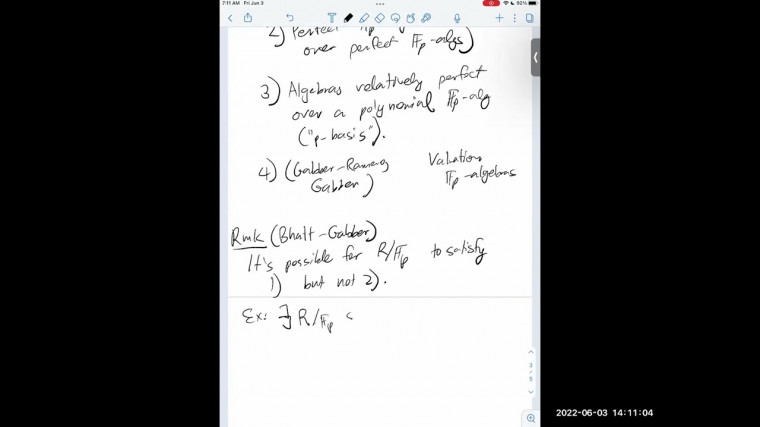 7:11 AM Fri Jun 3
92%
2) Perfect
over perfect 𝔽p-algs)
3) Algebras relatively perfect
over a polynomial 𝔽p-alg
("p-basis").
4) (Gabber-Ramero, Valuation
Gabber) 𝔽p-algebras
Rmk (Bhatt-Gabber)
It's possible for R/𝔽p to satisfy
1) but not 2).
Ex: ∃ R/𝔽p
3
5
2022-06-03 14:11:04